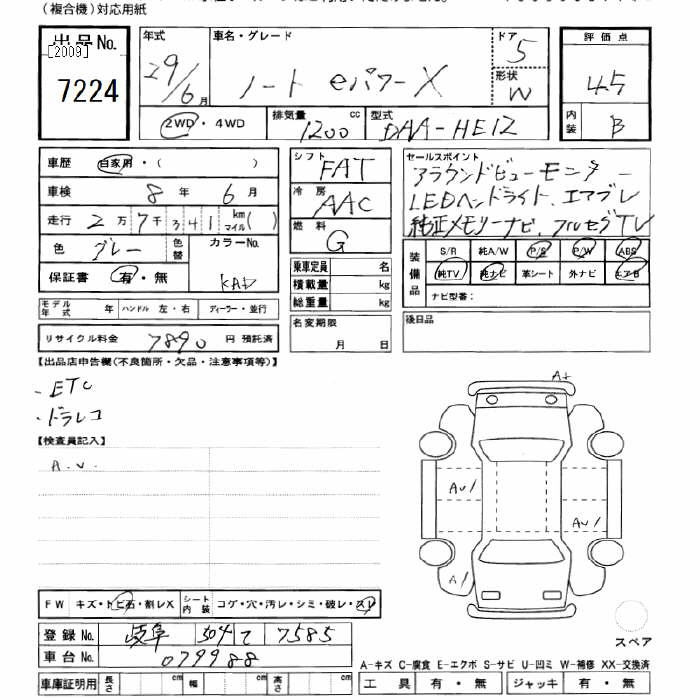 (複合機)対応用紙
出品No.
[2009]
7224
年式 29/6月
車名・グレード ノート eパワーX
ドア 5
形状 W
評価点 4.5
内装 B
2WD・4WD
排気量 1200 cc
型式 DAA-HE12
車歴 自家用・( )
車検 8年6月
走行 2万7千341 km マイル( )
色 グレー 色替
カラーNo. KAD
保証書 有・無
モデル年式 年 ハンドル 左・右 ディーラー・並行
リサイクル料金 7890 円 預託済
シフト FAT
冷房 AAC
燃料 G
乗車定員 名
積載量 kg
総重量 kg
名変期限 月 日
セールスポイント
アラウンドビューモニター
LEDヘッドライト、エアブレ
純正メモリーナビ、フルセグTV
装備品
S/R 純A/W P/S P/W ABS
純TV 純ナビ 革シート 外ナビ エアB
ナビ型番:
後日品
【出品店申告欄(不良箇所・欠品・注意事項等)】
・ETC
・ドラレコ
【検査員記入】
A.U.
A+
AU1
AU1
A1
スペア
FW キズ・トビ石・割レX
シート内装 コゲ・穴・汚レ・シミ・破レ・スレ
登録No. 岐阜 504 て 7585
車台No. 079988
車庫証明用 長さ cm 幅 cm 高さ cm
A-キズ C-腐食 E-エクボ S-サビ U-凹ミ W-補修 XX-交換済
工具 有・無 ジャッキ 有・無